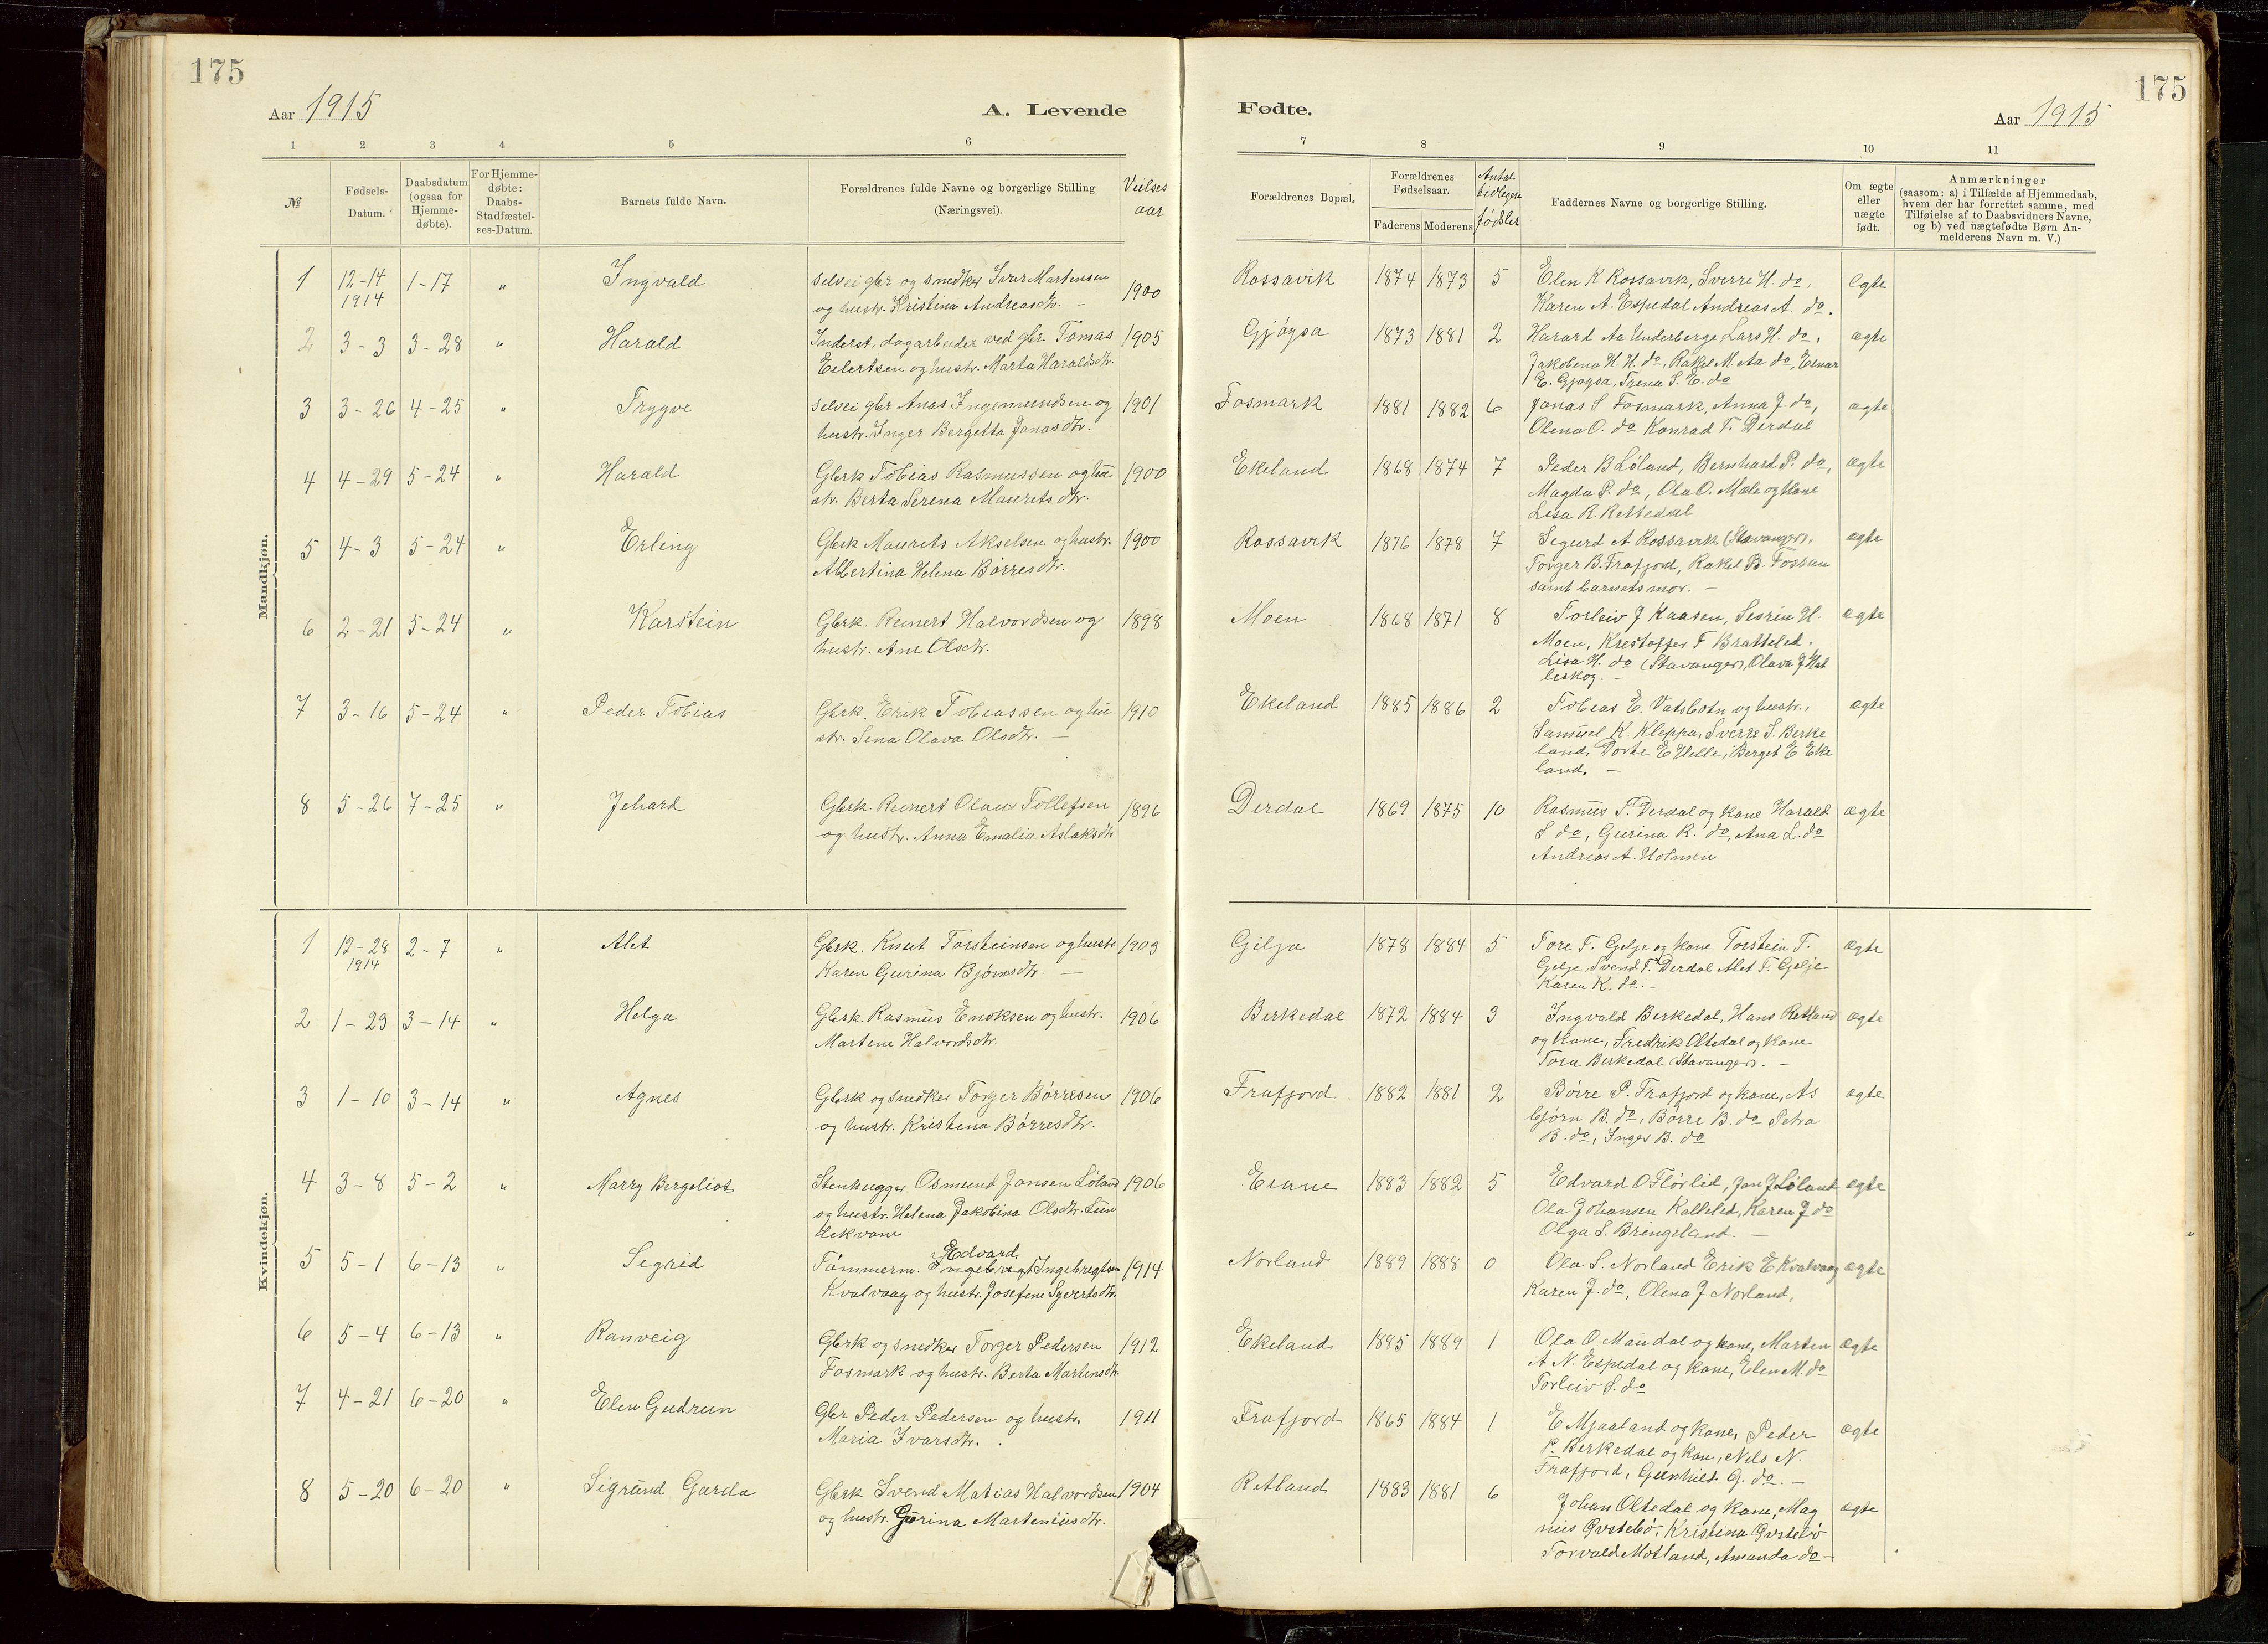 175
175
Aar 1915
A. Levende
Fødte.
Aar 1915
1 2 3 4 5 6
7 8 9 10 11
№
Fødsels-
Datum.
Daabsdatum
(ogsaa for
Hjemme-
døbte).
For Hjemme-
døbte:
Daabs-
Stadfæstel-
ses-Datum.
Barnets fulde Navn.
Forældrenes fulde Navne og borgerlige Stilling
(Næringsvei).
Vielses
aar
Forældrenes Bopæl.
Forældrenes
Fødselsaar.
Faderens Moderens
Antal
tidligere
fødsler
Faddernes Navne og borgerlige Stilling.
Om ægte
eller
uægte
født.
Anmærkninger
(saasom: a) i Tilfælde af Hjemmedaab,
hvem der har forrettet samme, med
Tilføielse af to Daabsvidners Navne,
og b) ved uægtefødte Børn An-
melderens Navn m. V.)
Mandkjøn.
1 12-14 1-17 " Ingvald selvei gbr og snedker Ivar Martensen
1914 og hustr. Kristina Andreasdtr. – 1900
Rossavik 1874 1873 5 Elen K Rossavik, Sverre H. do, ægte
Karen A. Espedal Andreas A. do.
2 3-3 3-28 " Harald Inderst, dagarbeider ved gbr. Tomas 1905
Eilertsen og hustr. Marta Haraldsdtr.
Gjøysa 1873 1881 2 Harard Aa Underberge Lars H. do, ægte
Jakobina H. H. do, Rakel M. Aa do, Einar
E. Gjøysa, Trena S. E. do
3 3-26 4-25 " Trygve selvei gbr Anas Ingemundsen og 1901
hustr. Inger Bergetta Jonasdtr.
Fosmark 1881 1882 6 Jonas S Fosmark, Anna J. do, ægte
Olena O. do Konrad T. Dirdal
4 4-29 5-24 " Harald Gbrk Tobias Rasmussen og hu 1900
str. Berta Serena Mauretsdtr.
Ekeland 1868 1874 7 Peder B Løland, Bernhard P. do, ægte
Magda P. do, Ola O. Mæle og kone
Lisa R. Rettedal
5 4-3 5-24 " Erling Gbrk Maurets Akselsen og hustr. 1900
Albertina Helena Børresdtr.
Rossavik 1876 1878 7 Sigurd A Rossavik (Stavanger), ægte
Torger B. Frafjord, Rakel B. Fossan
samt barnets mor. –
6 2-21 5-24 " Karstein Gbrk. Reinert Halvordsen og 1898
hustr. Ane Olsdtr.
Moen 1868 1871 8 Torleiv J Kaasen, Sesrin H. ægte
Moen, Kristoffer F Bratteled,
Lisa H. do (Stavanger), Olava J Hat
leskog. –
7 3-16 5-24 " Peder Tobias Gbrk. Erik Tobiassen og hu 1910
str. Sena Olava Olsdtr. –
Ekeland 1885 1886 2 Tobias E. Vatsbotn og hustr., ægte
Samuel K. Kleppa, Sverre S. Berke
land, Dorte E Helle, Berget E Eke
land. –
8 5-26 7-25 " Jehard Gbrk. Reinert Olaus Tollefsen 1896
og hustr. Anna Emalia Aslaksdtr
Derdal 1869 1875 10 Rasmus T. Derdal og kone Harald ægte
S do, Gurina R. do, Ana L. do
Andreas A. Holmen
Kvindekjøn.
1 12-28 2-7 " Alet Gbrk. Knut Torsteinsen og hustr 1903
1914 Karen Gurina Bjørnsdtr. –
Gilja 1878 1884 5 Tore T. Gilje og kone Torstein T. ægte
Gilje, Svend T. Derdal Alet T. Gilje
Karen K. do. –
2 1-23 3-14 " Helga Gbrk. Rasmus Enoksen og hustr. 1906
Martene Halvordsdtr.
Berkedal 1872 1884 3 Ingvald Berkedal, Hans Retland ægte
og kone, Fredrik Oltedal og kone
Tora Berkedal (Stavanger). –
3 1-10 3-14 " Agnes Gbrk og snedker Torger Børresen 1906
og hustr. Kristena Børresdtr.
Frafjord 1882 1881 2 Børre P. Frafjord og kone, As ægte
bjørn B. do, Børre B. do Petra
B. do, Inger B. do
4 3-8 5-2 " Marry Bergeliot Stenhugger Osmund Jansen Løland 1906
og hustr. Helena Jakobina Olsdtr. Lun
dekvam
Eiane 1883 1882 5 Edvard O Flørlid, Jan J Løland ægte
Ola Johansen Kalleled, Karen J do
Olga S. Bringeland. –
5 5-1 6-13 " Segrid Tømmerm. Edvard Ingebregt Ingebregtsen 1914
Kvalvaag og hustr. Josefine Syvertsdtr.
Norland 1889 1888 0 Ola S. Norland Erik E Kvalvaag ægte
Karen J. do, Olena J. Norland,
6 5-4 6-13 " Ranveig Gbrk og snedker Torger Pedersen 1912
Fosmark og hustr. Berta Martensdtr.
Ekeland 1885 1889 1 Ola O. Maudal og kone, Marten ægte
A N. Espedal og kone, Elen M. do
Torleiv S. do
7 4-21 6-20 " Elen Gudrun Gbr Peder Pedersen og hustr. 1911
Maria Ivarsdtr.
Frafjord 1865 1884 1 E Mjaaland og kone, Peder ægte
P. Berkedal og kone, Nils N.
Frafjord, Gunhild G. do. –
8 5-20 6-20 " Sigrund Garda Gbrk Svend Matias Halvordsen 1904
og hustr. Gurina Marteniusdtr.
Retland 1883 1881 6 Johan Oltedal og kone, Mag ægte
nus Øvstebø, Kristina Øvstebø
Torvald Motland, Amanda do –